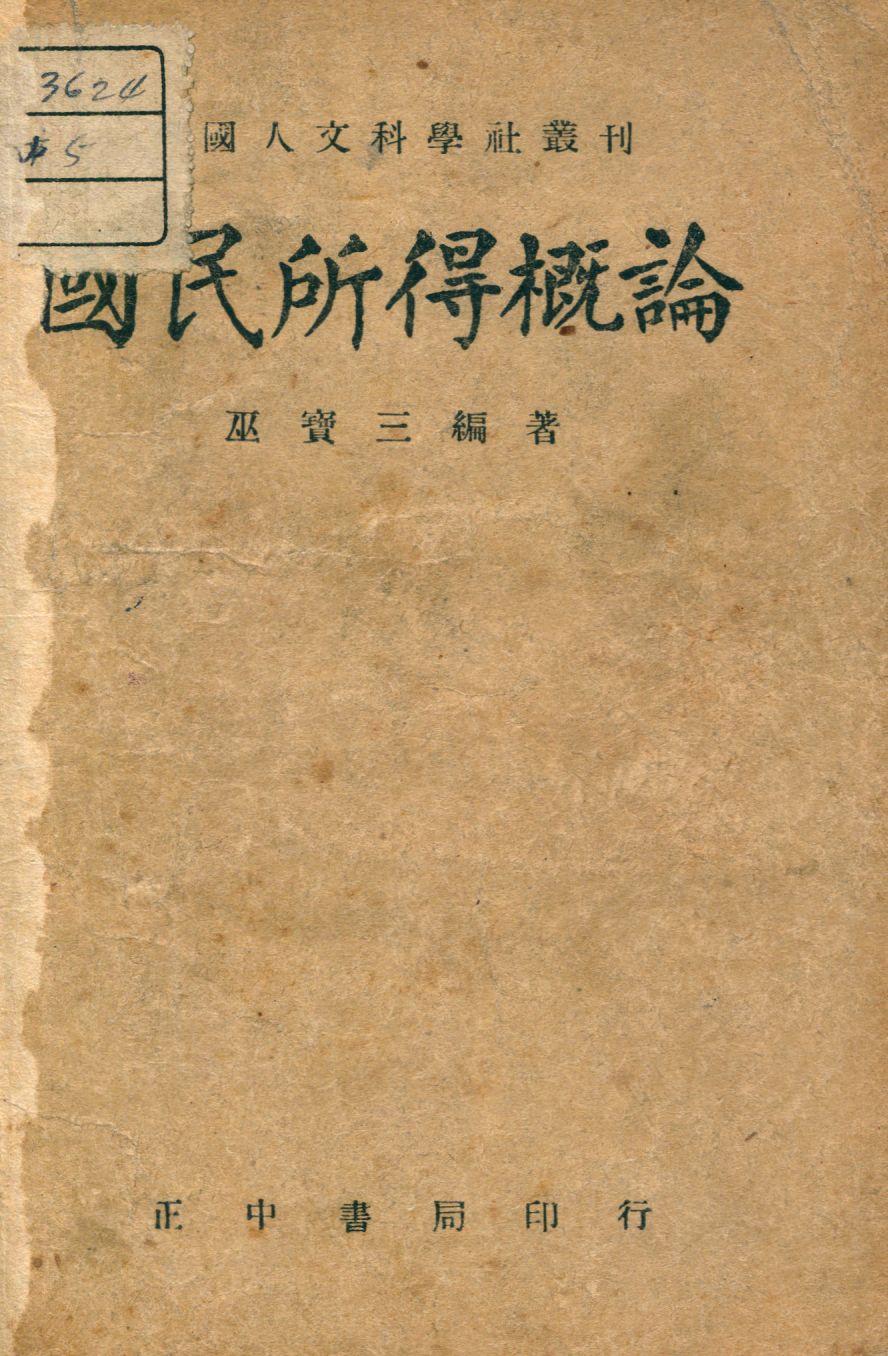 3624
5
國人文科學社叢刊
國民所得概論
巫寶三編著
正中書局印行